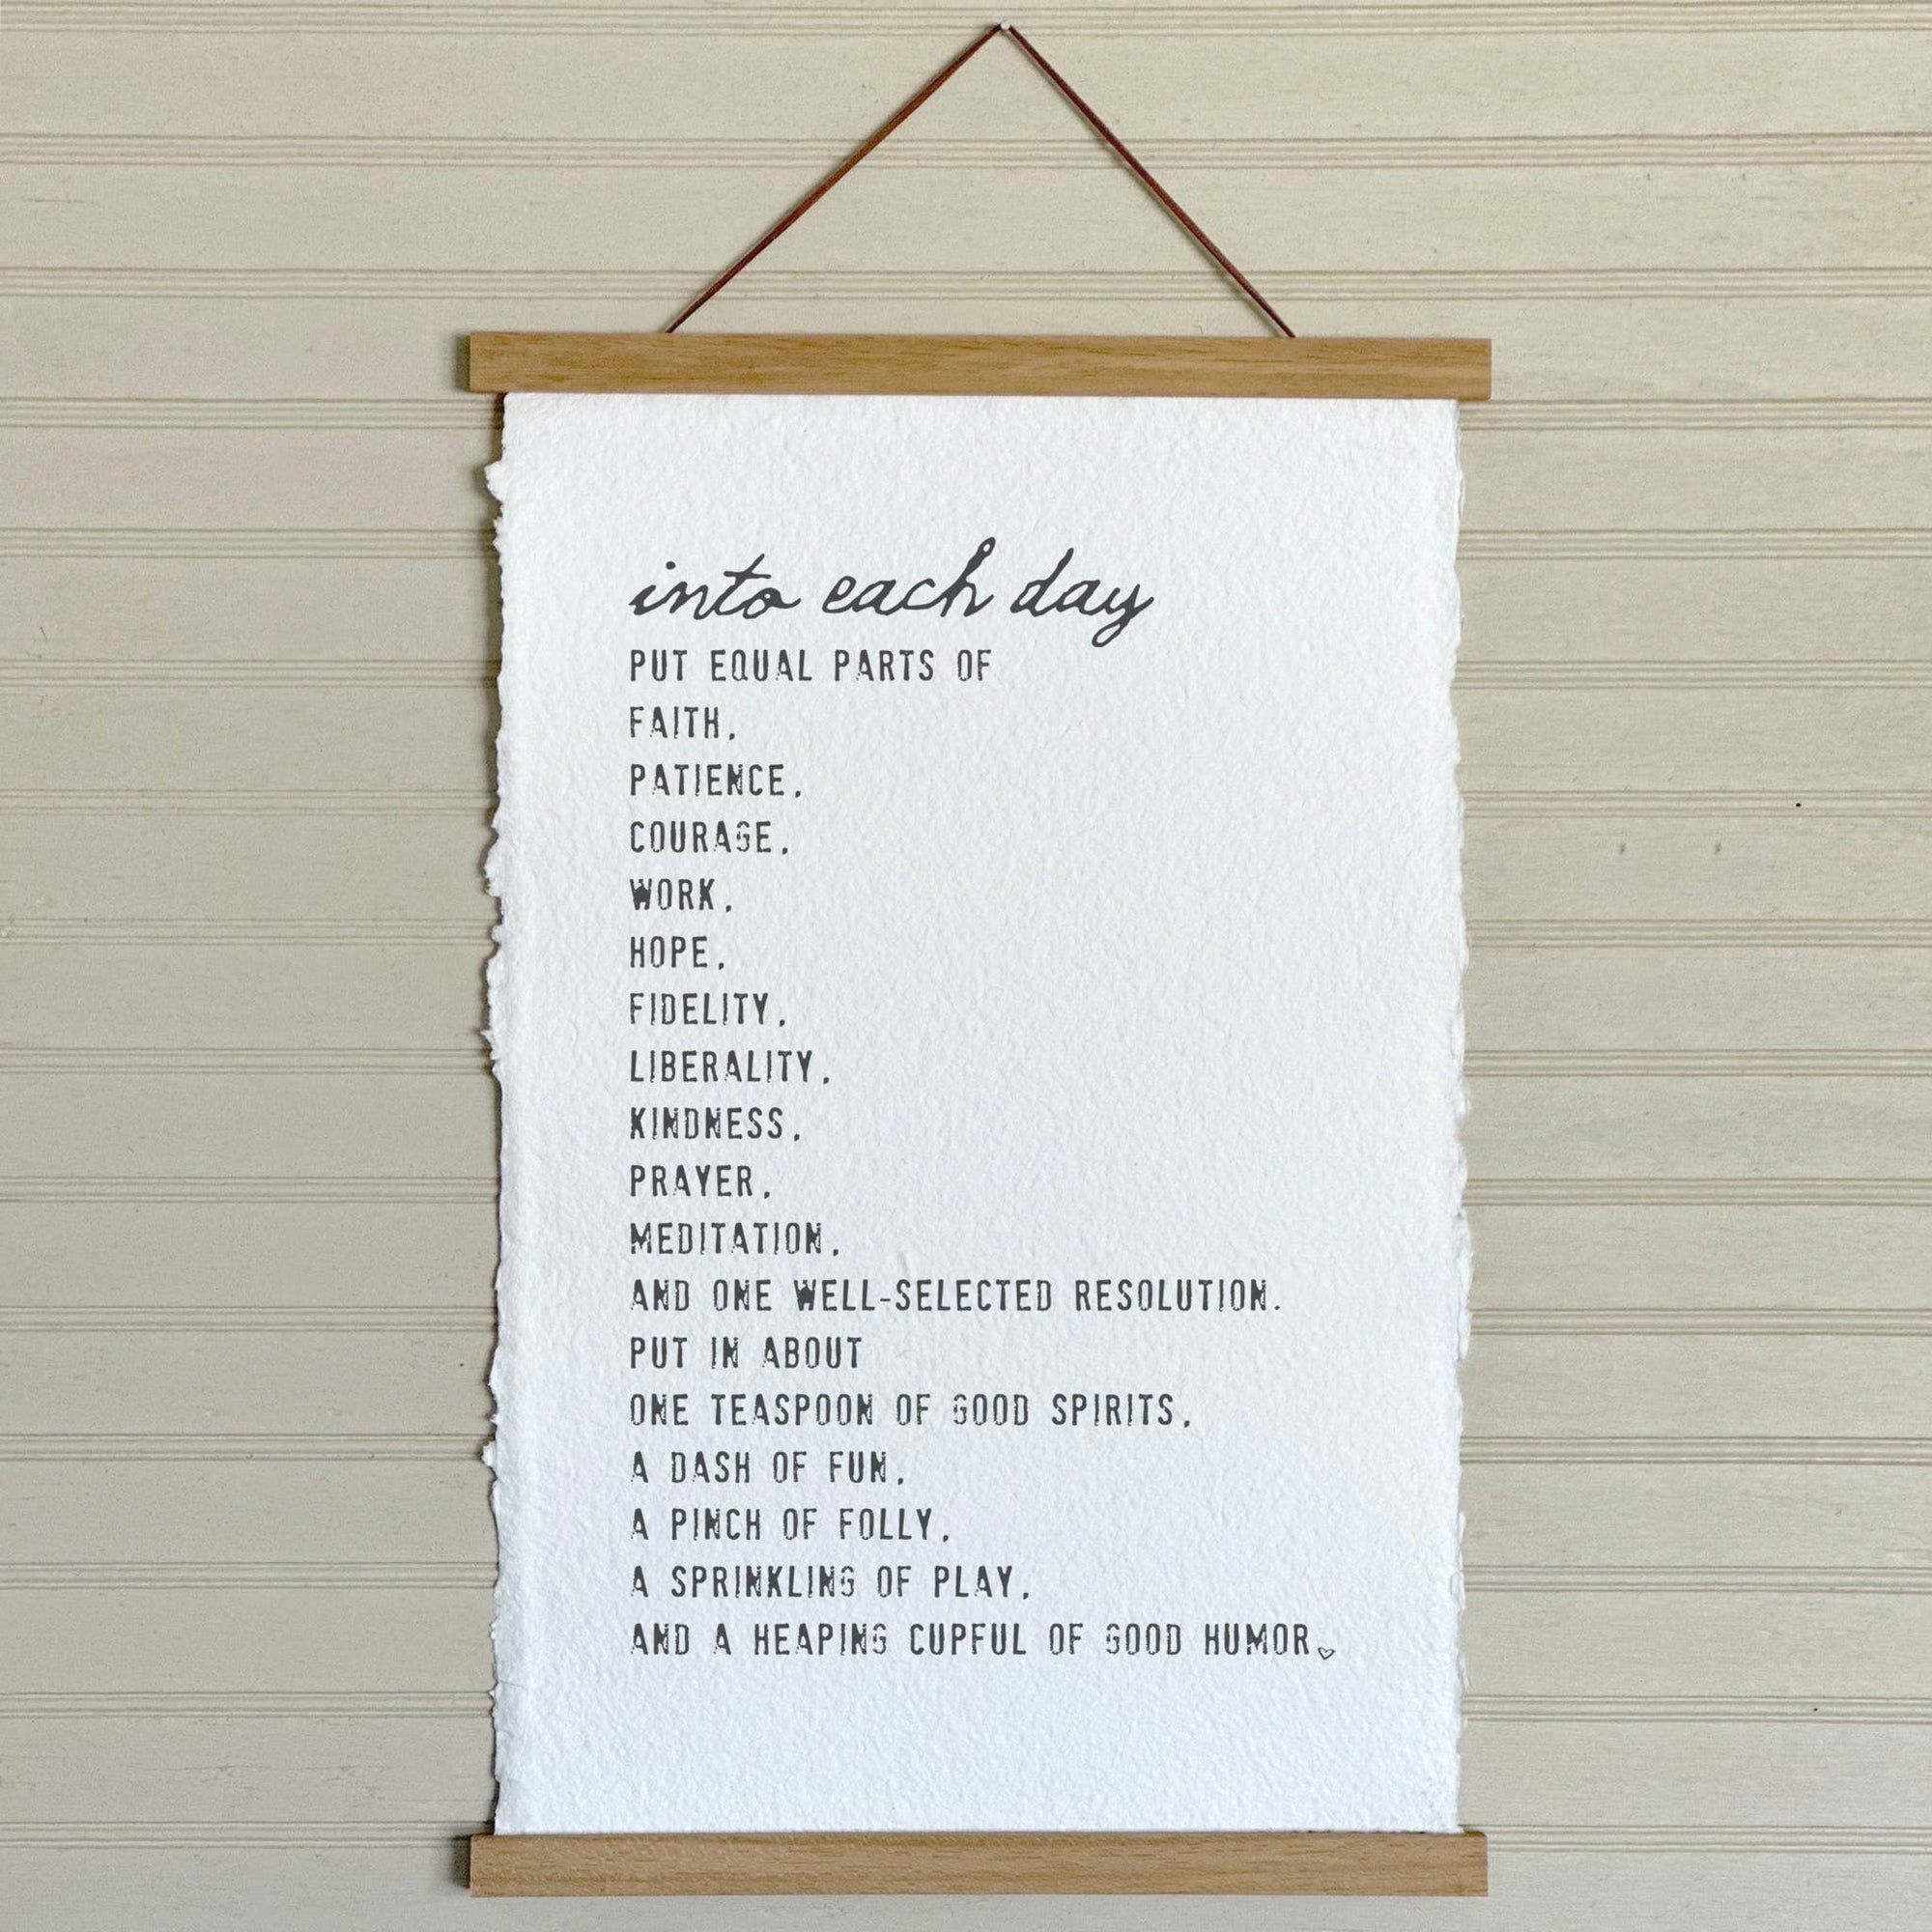 into each day
PUT EQUAL PARTS OF
FAITH,
PATIENCE,
COURAGE,
WORK,
HOPE,
FIDELITY,
LIBERALITY,
KINDNESS,
PRAYER,
MEDITATION,
AND ONE WELL-SELECTED RESOLUTION.
PUT IN ABOUT
ONE TEASPOON OF GOOD SPIRITS,
A DASH OF FUN,
A PINCH OF FOLLY,
A SPRINKLING OF PLAY,
AND A HEAPING CUPFUL OF GOOD HUMOR